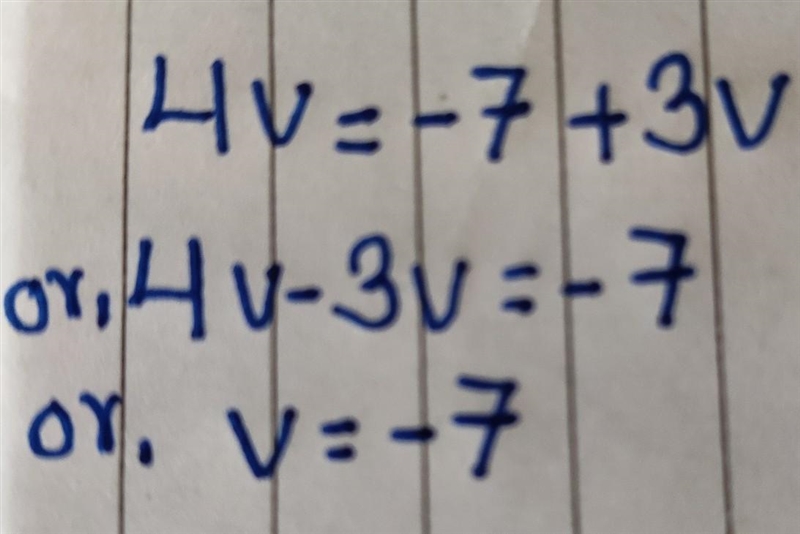 4v = -7 + 3v
or, 4v - 3v = -7
or. v = -7